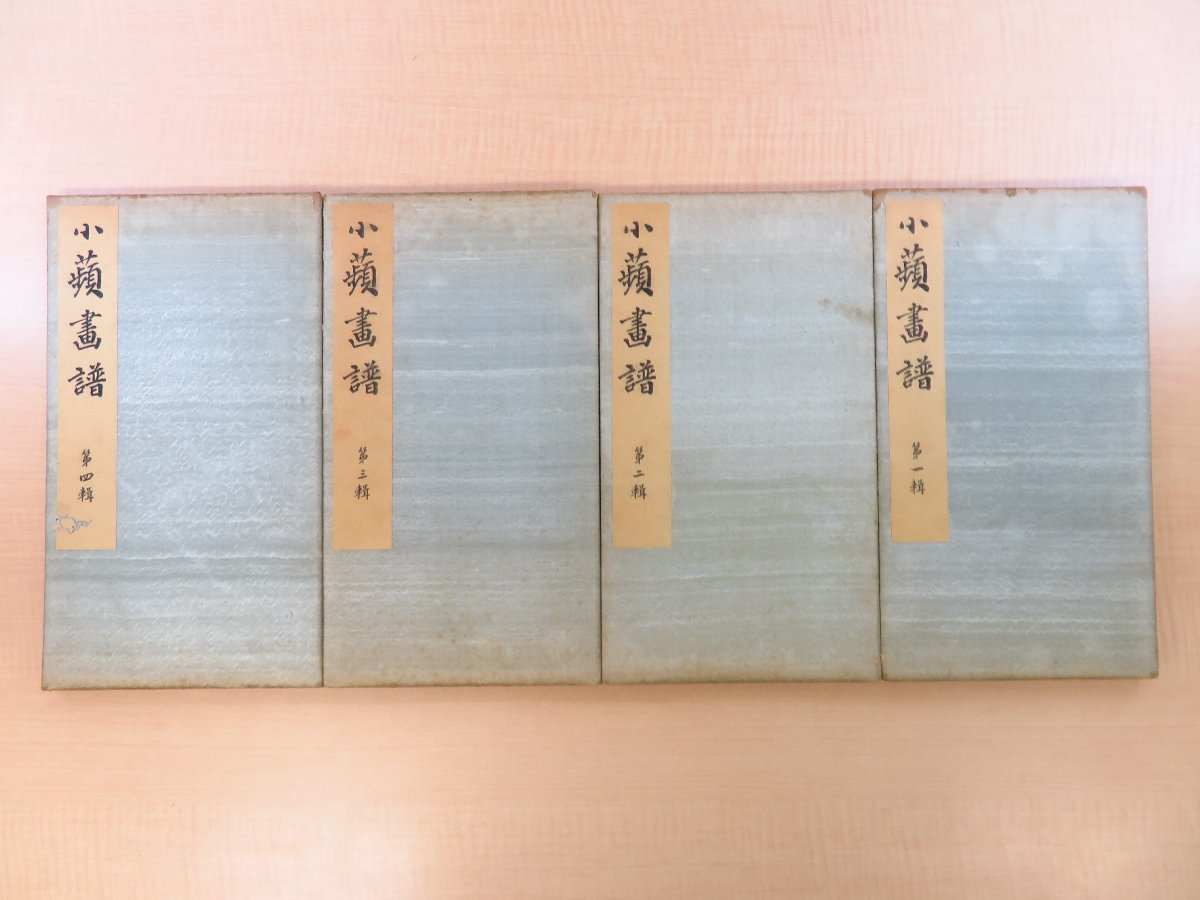 小蘋畫譜
第一輯
小蘋畫譜
第二輯
小蘋畫譜
第三輯
小蘋畫譜
第四輯